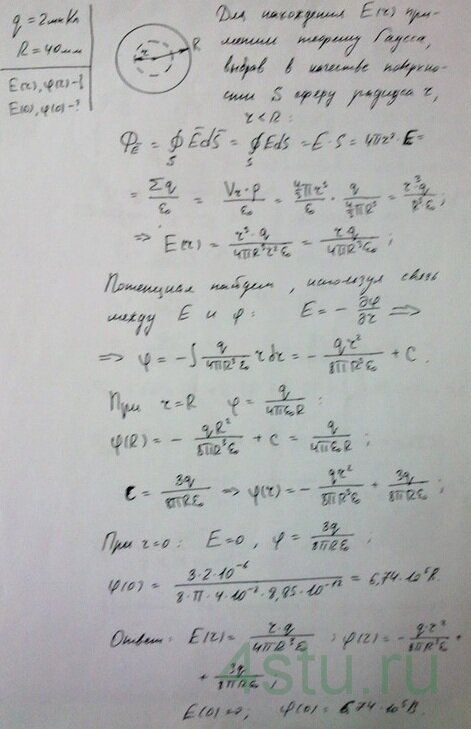 q = 2мкКл
R = 40мм
E(r), φ(r) - ?
E(0), φ(0) - ?
r
R
Для нахождения E(r) при-
меним теорему Гаусса,
выбрав в качестве поверхно-
сти S сферу радиуса r,
r < R:
Φ_E = ∮_S E̅dS̅ = ∮_S EdS = E·S = 4πr²·E =
= Σq/ε₀ = V_r·ρ/ε₀ = (4/3 πr³)/ε₀ · q/(4/3 πR³) = r³q/(R³ε₀);
=> E(r) = r³·q/(4πR³r²ε₀) = rq/(4πR³ε₀);
Потенциал найдем, используя связь
между E и φ: E = - ∂φ/∂r =>
=> φ = -∫ q/(4πR³ε₀) r dr = - qr²/(8πR³ε₀) + C.
При r=R φ = q/(4πε₀R) :
φ(R) = - qR²/(8πR³ε₀) + C = q/(4πε₀R);
C = 3q/(8πRε₀) => φ(r) = - qr²/(8πR³ε₀) + 3q/(8πRε₀);
При r=0: E=0, φ = 3q/(8πRε₀);
φ(0) = 3·2·10⁻⁶/(8·π·4·10⁻²·8,85·10⁻¹²) = 6,74·10⁵В.
Ответ: E(r) = r·q/(4πR³ε₀); φ(r) = - q·r²/(8πR³ε₀) +
+ 3q/(8πRε₀);
E(0)=0; φ(0) = 6,74·10⁵В.
4stu.ru